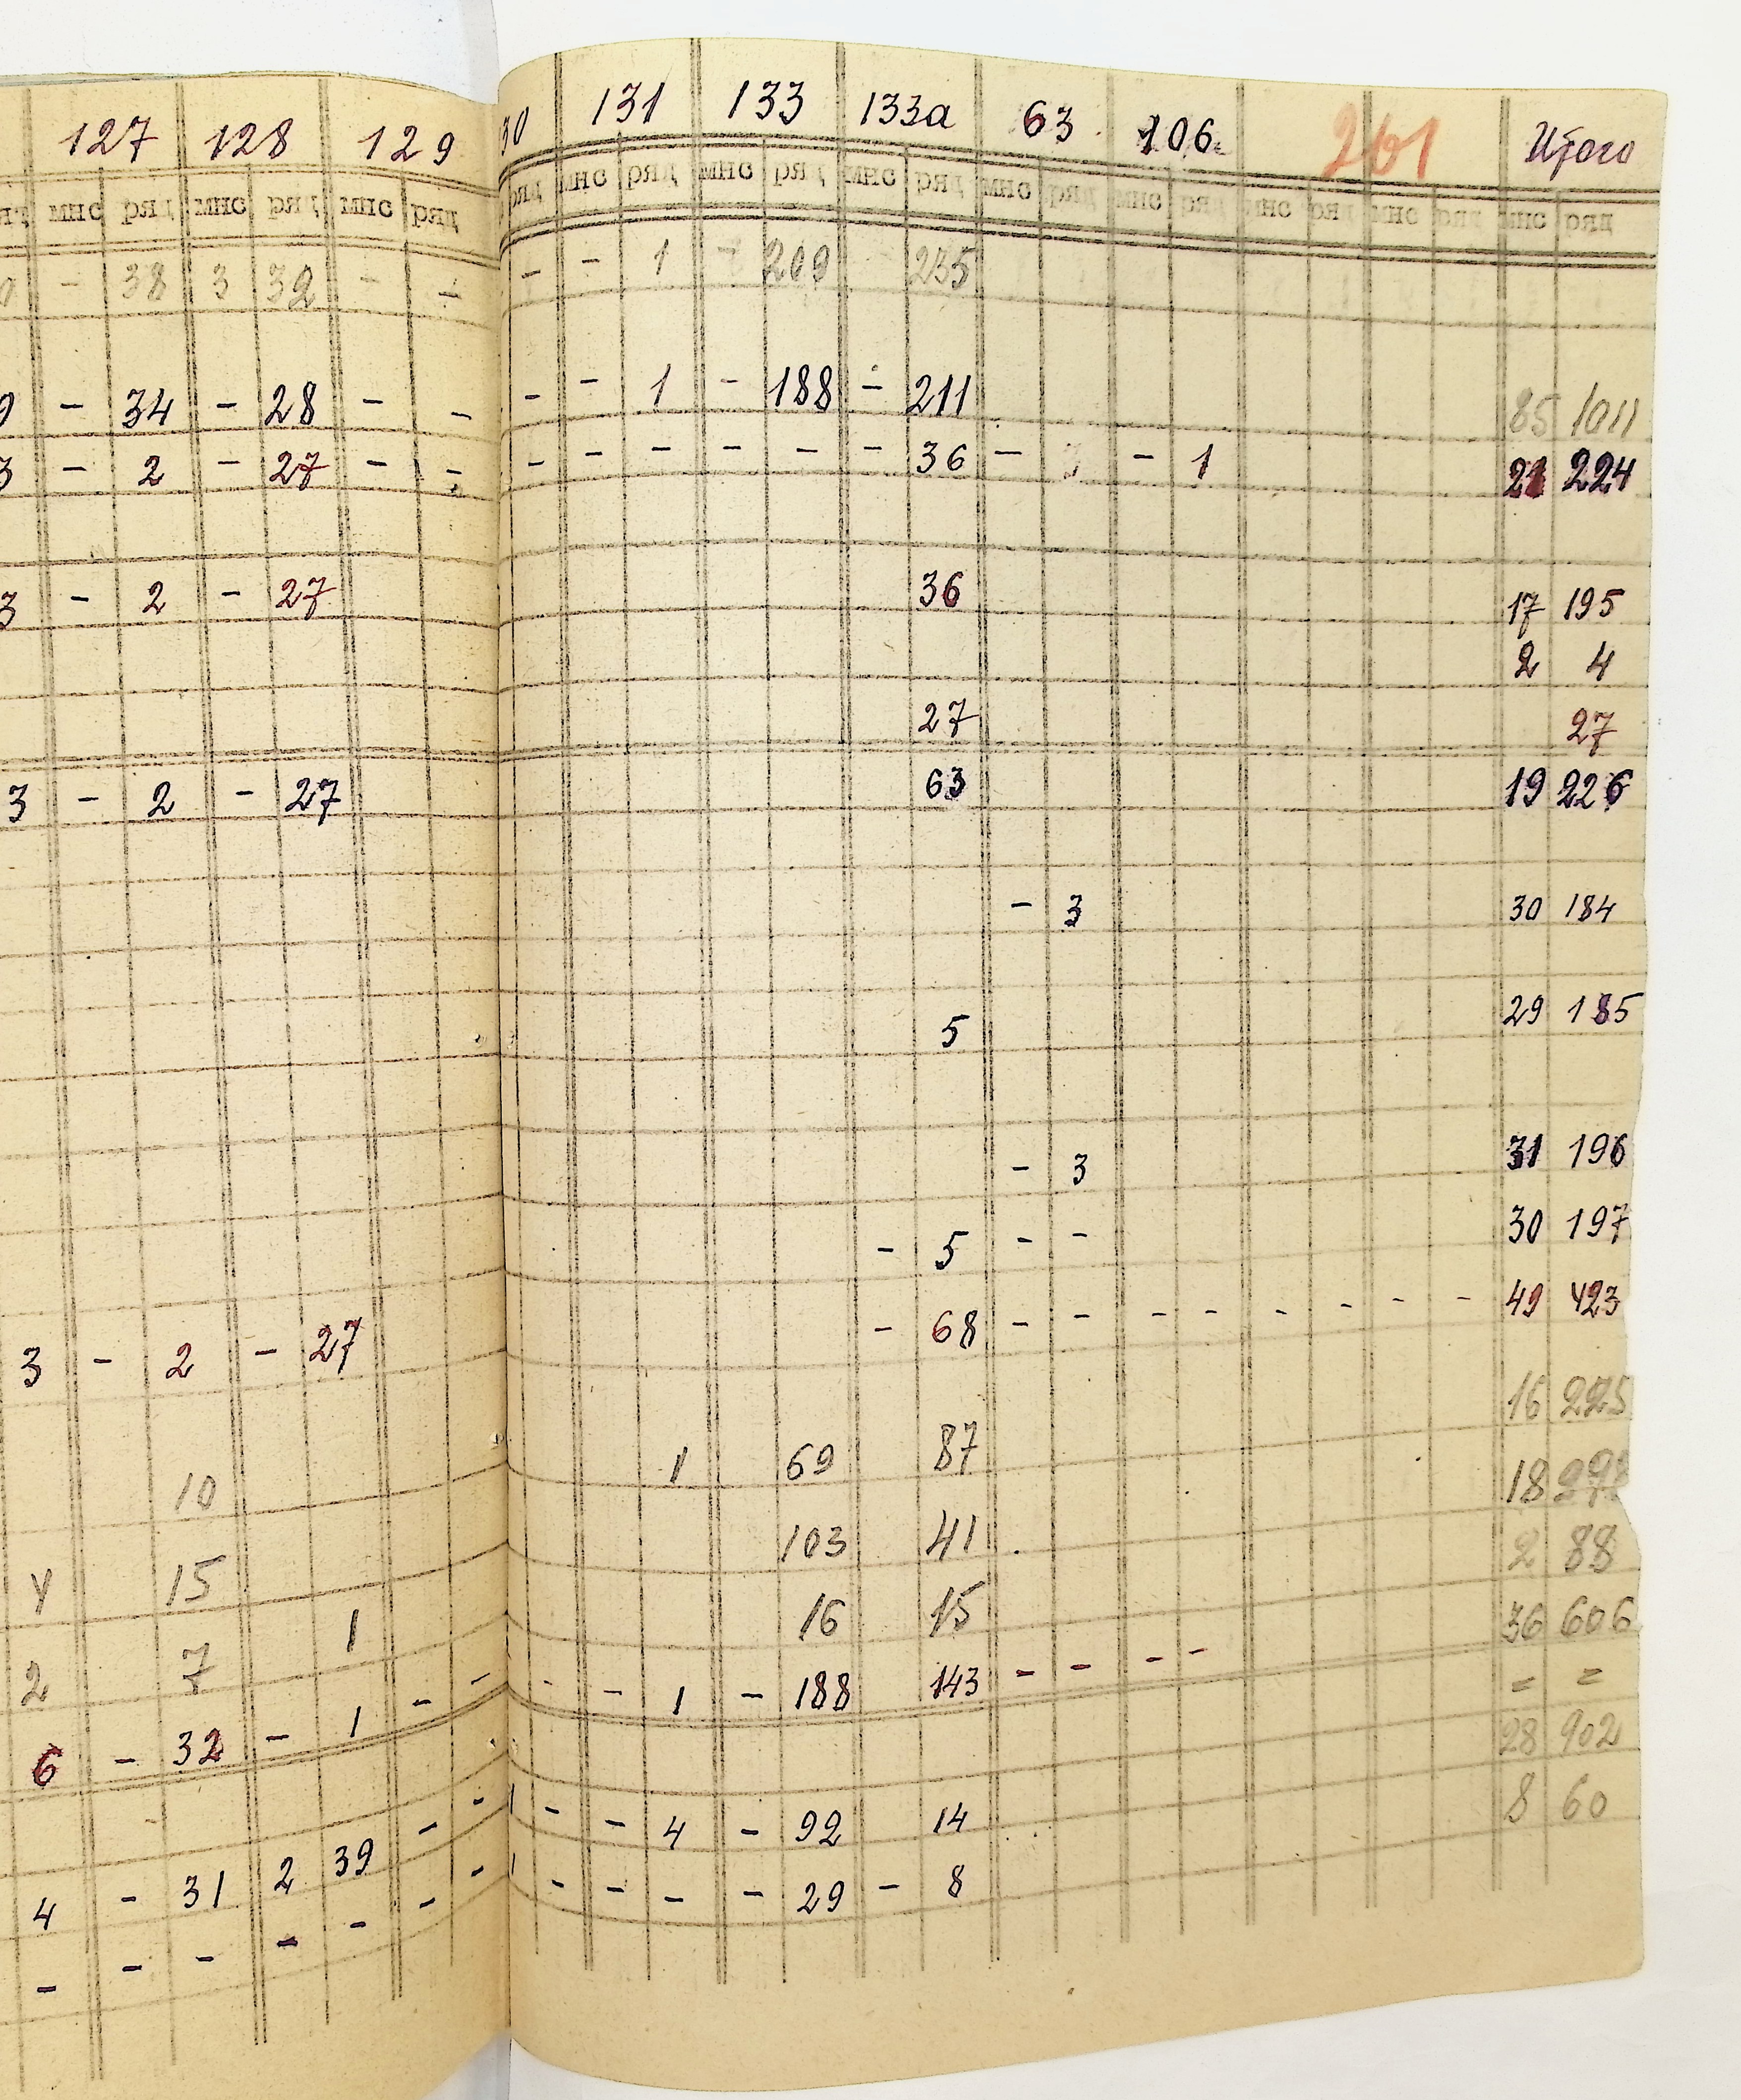 127 128 129 30 131 133 133а 63 106 261 Итого
мнс ряд мнс ряд мнс ряд ряд мнс ряд мнс ряд мнс ряд мнс ряд мнс ряд мнс ряд мнс ряд мнс ряд
- 38 3 32 - - - - 1 - 209 235
- 34 - 28 - - - - 1 - 188 - 211 85 1011
3 - 2 - 27 - - - - - - - - 36 - 3 - 1 21 224
3 - 2 - 27 36 17 195
2 4
27 27
3 - 2 - 27 63 19 226
- 3 30 184
5 29 185
- 3 31 196
- 5 - - 30 197
3 - 2 - 27 - 68 - - - - - - - - 49 423
16 225
10 1 69 87 18
4 15 103 41 2 88
2 7 1 16 15 36 606
6 - 32 - 1 - - - - 1 - 188 143 - - - - = =
28 902
4 - 31 2 39 - - - - 4 - 92 14 8 60
- - - - - - - - - - - 29 - 8